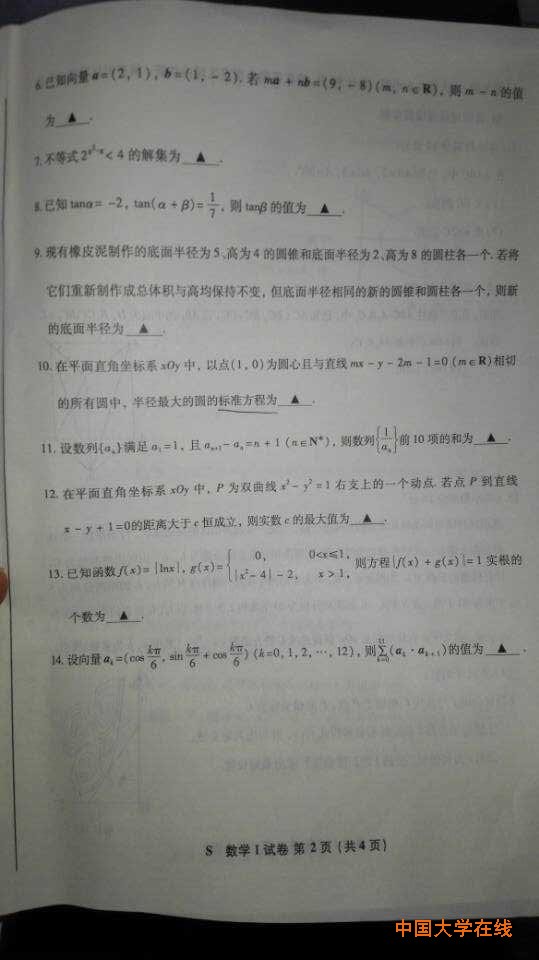 6.已知向量a=(2,1),b=(1,-2).若ma+nb=(9,-8)(m,n∈R),则m-n的值
为 ▲ .
7.不等式2^{x²-x}<4的解集为 ▲ .
8.已知tanα=-2,tan(α+β)=1/7,则tanβ的值为 ▲ .
9.现有橡皮泥制作的底面半径为5、高为4的圆锥和底面半径为2、高为8的圆柱各一个.若将
它们重新制作成总体积与高均保持不变,但底面半径相同的新的圆锥和圆柱各一个,则新
的底面半径为 ▲ .
10.在平面直角坐标系xOy中,以点(1,0)为圆心且与直线mx-y-2m-1=0(m∈R)相切
的所有圆中,半径最大的圆的标准方程为 ▲ .
11.设数列{aₙ}满足a₁=1,且aₙ₊₁-aₙ=n+1(n∈N*),则数列{1/aₙ}前10项的和为 ▲ .
12.在平面直角坐标系xOy中,P为双曲线x²-y²=1右支上的一个动点.若点P到直线
x-y+1=0的距离大于c恒成立,则实数c的最大值为 ▲ .
13.已知函数f(x)=|lnx|,g(x)={0, 0<x≤1, |x²-4|-2, x>1, 则方程|f(x)+g(x)|=1实根的
个数为 ▲ .
14.设向量aₖ=(cos kπ/6, sin kπ/6+cos kπ/6)(k=0,1,2,…,12),则∑_{k=0}^{11}(aₖ·aₖ₊₁)的值为 ▲ .
S 数学Ⅰ试卷 第2页(共4页)
中国大学在线